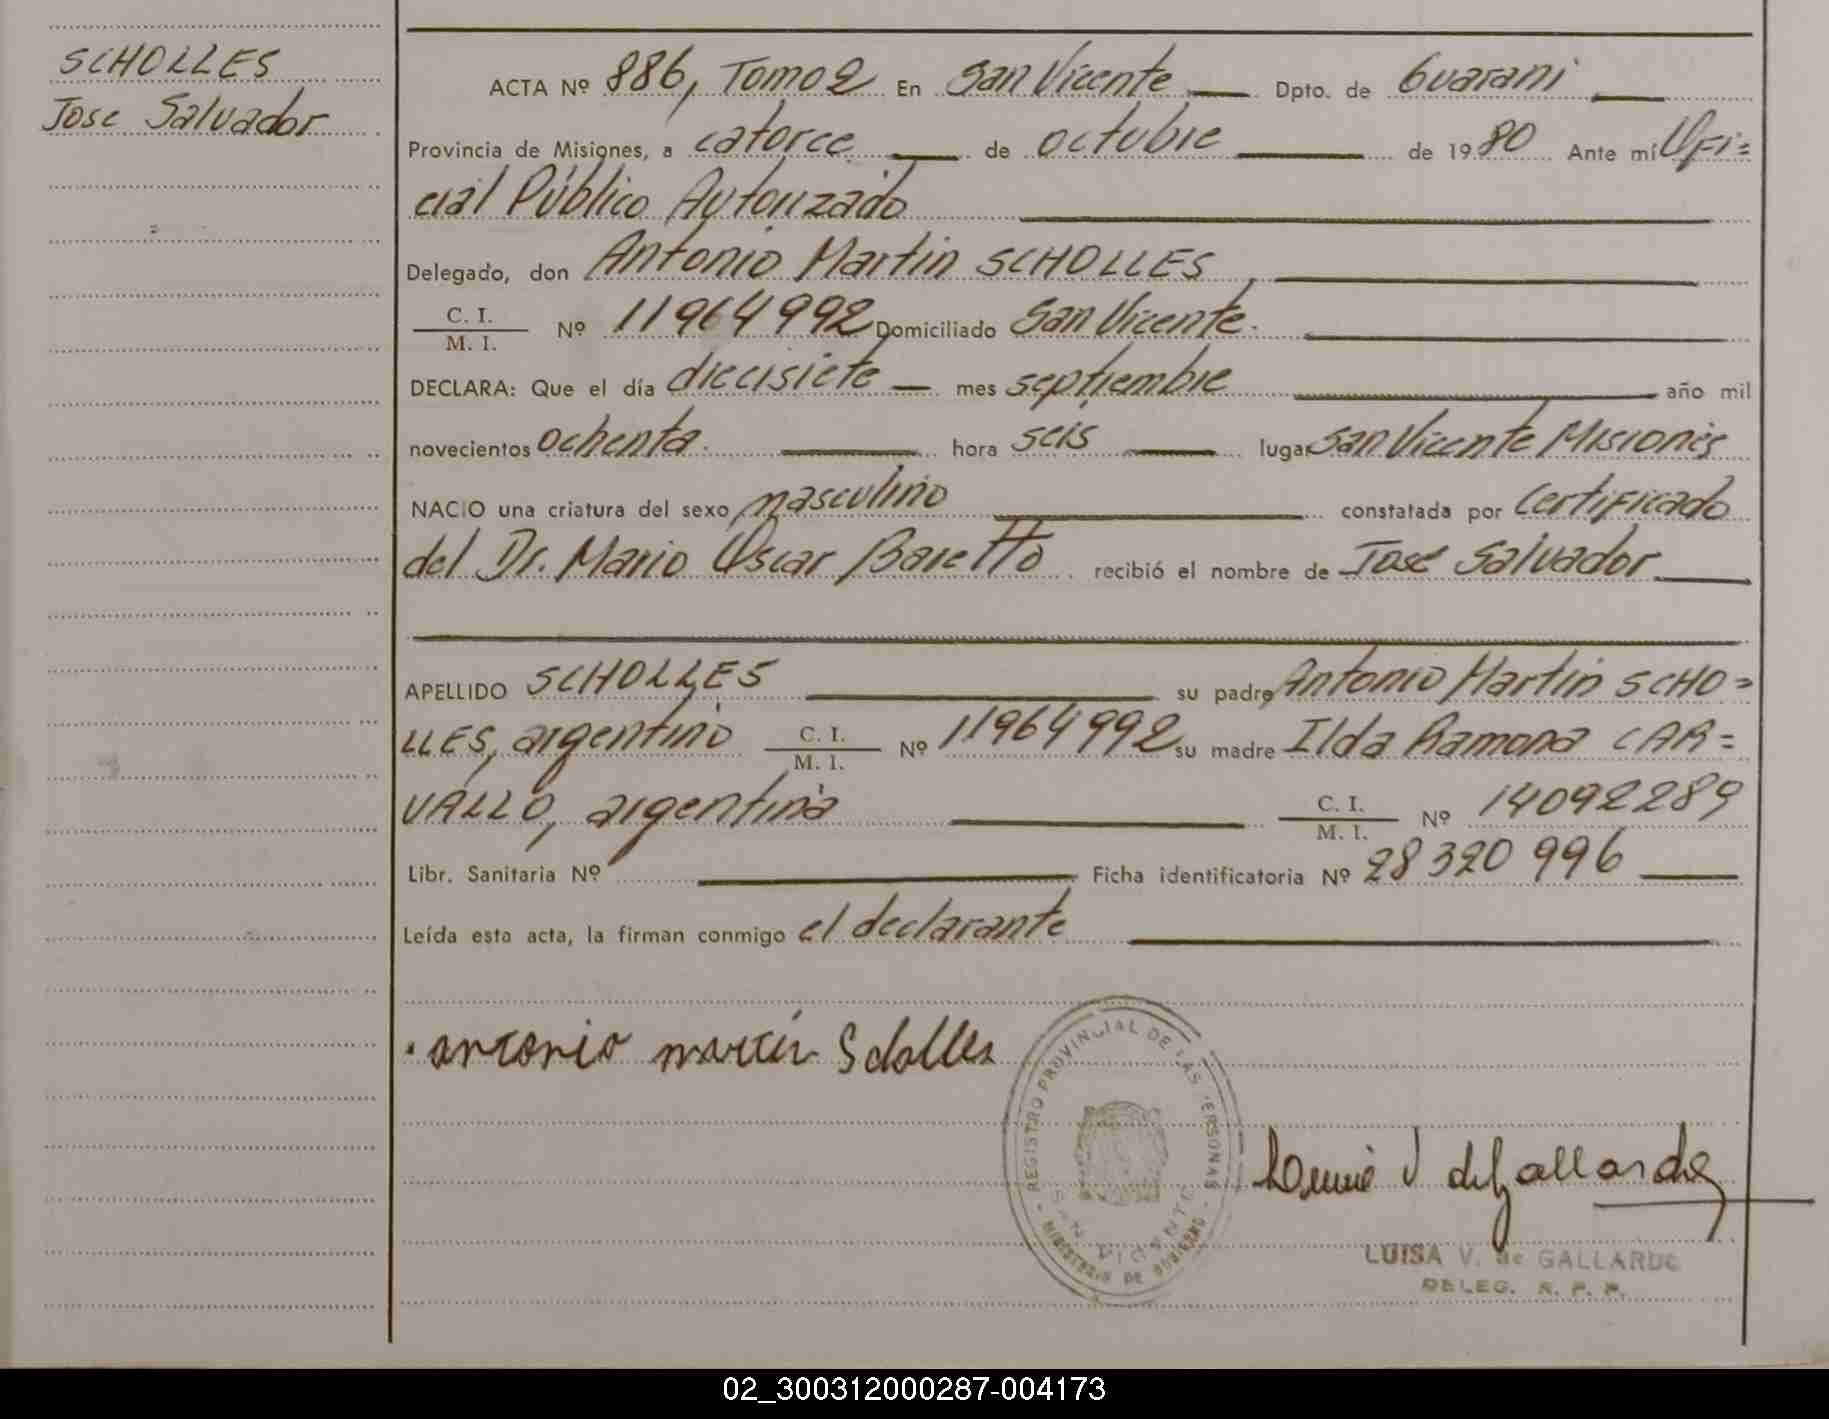 SCHOLLES
Jose Salvador
ACTA Nº 886, Tomo 2 En San Vicente Dpto. de Guarani
Provincia de Misiones, a catorce de octubre de 1980 Ante mí Ofi=
cial Público Autorizado
Delegado, don Antonio Martin SCHOLLES
C. I.
M. I. Nº 11964992 Domiciliado San Vicente.
DECLARA: Que el día diecisiete mes septiembre año mil
novecientos ochenta. hora seis lugar San Vicente Misiones
NACIO una criatura del sexo masculino constatada por Certificado
del Dr. Mario Oscar Baretto recibió el nombre de José Salvador
APELLIDO SCHOLLES su padre Antonio Martin SCHO=
LLES, argentino C. I. M. I. Nº 11964992 su madre Ilda Ramona CAR=
VALLO, argentina C. I. M. I. Nº 14092289
Libr. Sanitaria Nº Ficha identificatoria Nº 28320996
Leída esta acta, la firman conmigo el declarante
antonio martin Scholles
REGISTRO PROVINCIAL DE LAS PERSONAS
SAN VICENTE
MINISTERIO DE GOBIERNO
V de Gallardo
LUISA V. de GALLARDO
DELEG. R. P. P.
02_300312000287-004173